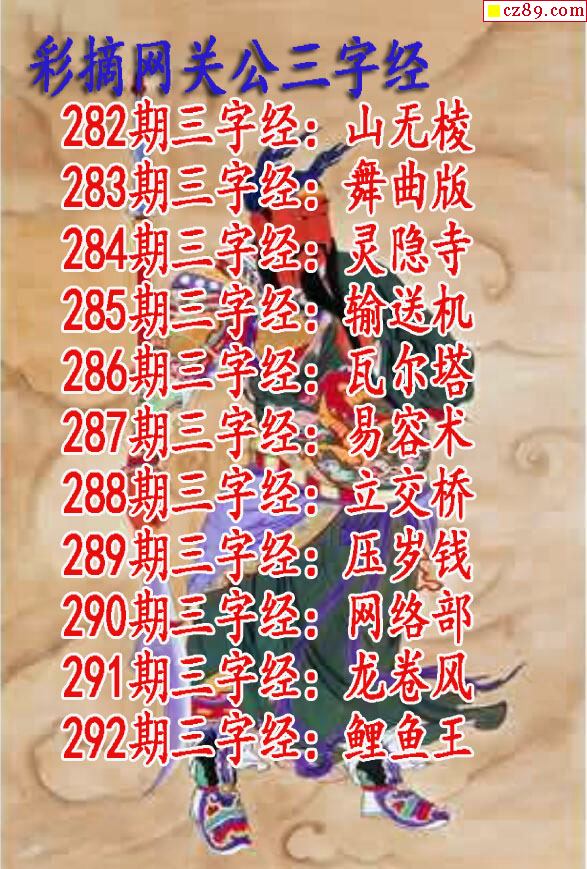 cz89.com
彩摘网关公三字经
282期三字经：山无棱
283期三字经：舞曲版
284期三字经：灵隐寺
285期三字经：输送机
286期三字经：瓦尔塔
287期三字经：易容术
288期三字经：立交桥
289期三字经：压岁钱
290期三字经：网络部
291期三字经：龙卷风
292期三字经：鲤鱼王